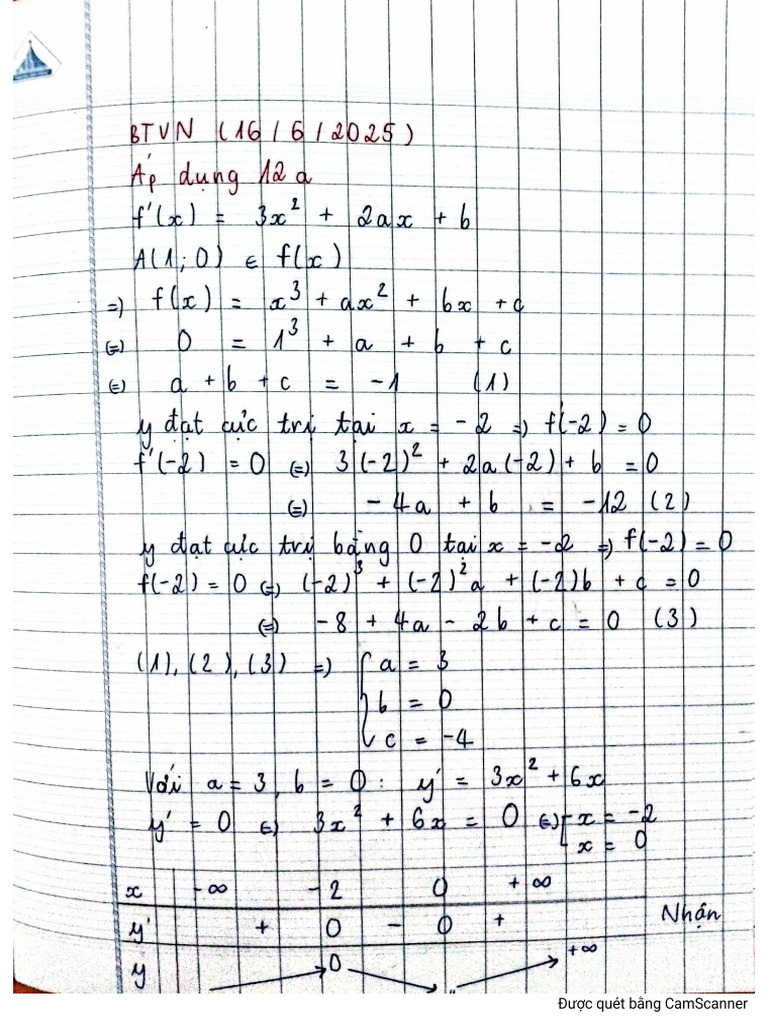 BTVN (16/6/2025)
Áp dụng 12a
f'(x) = 3x² + 2ax + b
A(1;0) ∈ f(x)
=) f(x) = x³ + ax² + bx + c
(=) 0 = 1³ + a + b + c
(=) a + b + c = -1 (1)
y đạt cực trị tại x = -2 =) f'(-2) = 0
f'(-2) = 0 (=) 3(-2)² + 2a(-2) + b = 0
(=) -4a + b = -12 (2)
y đạt cực trị bằng 0 tại x = -2 =) f(-2) = 0
f(-2) = 0 (=) (-2)³ + (-2)²a + (-2)b + c = 0
(=) -8 + 4a - 2b + c = 0 (3)
(1), (2), (3) =) { a = 3
b = 0
c = -4
Với a = 3, b = 0: y' = 3x² + 6x
y' = 0 (=) 3x² + 6x = 0 (=) [ x = -2
x = 0
x -∞ -2 0 +∞
y' + 0 - 0 + Nhận
y 0 +∞
Được quét bằng CamScanner